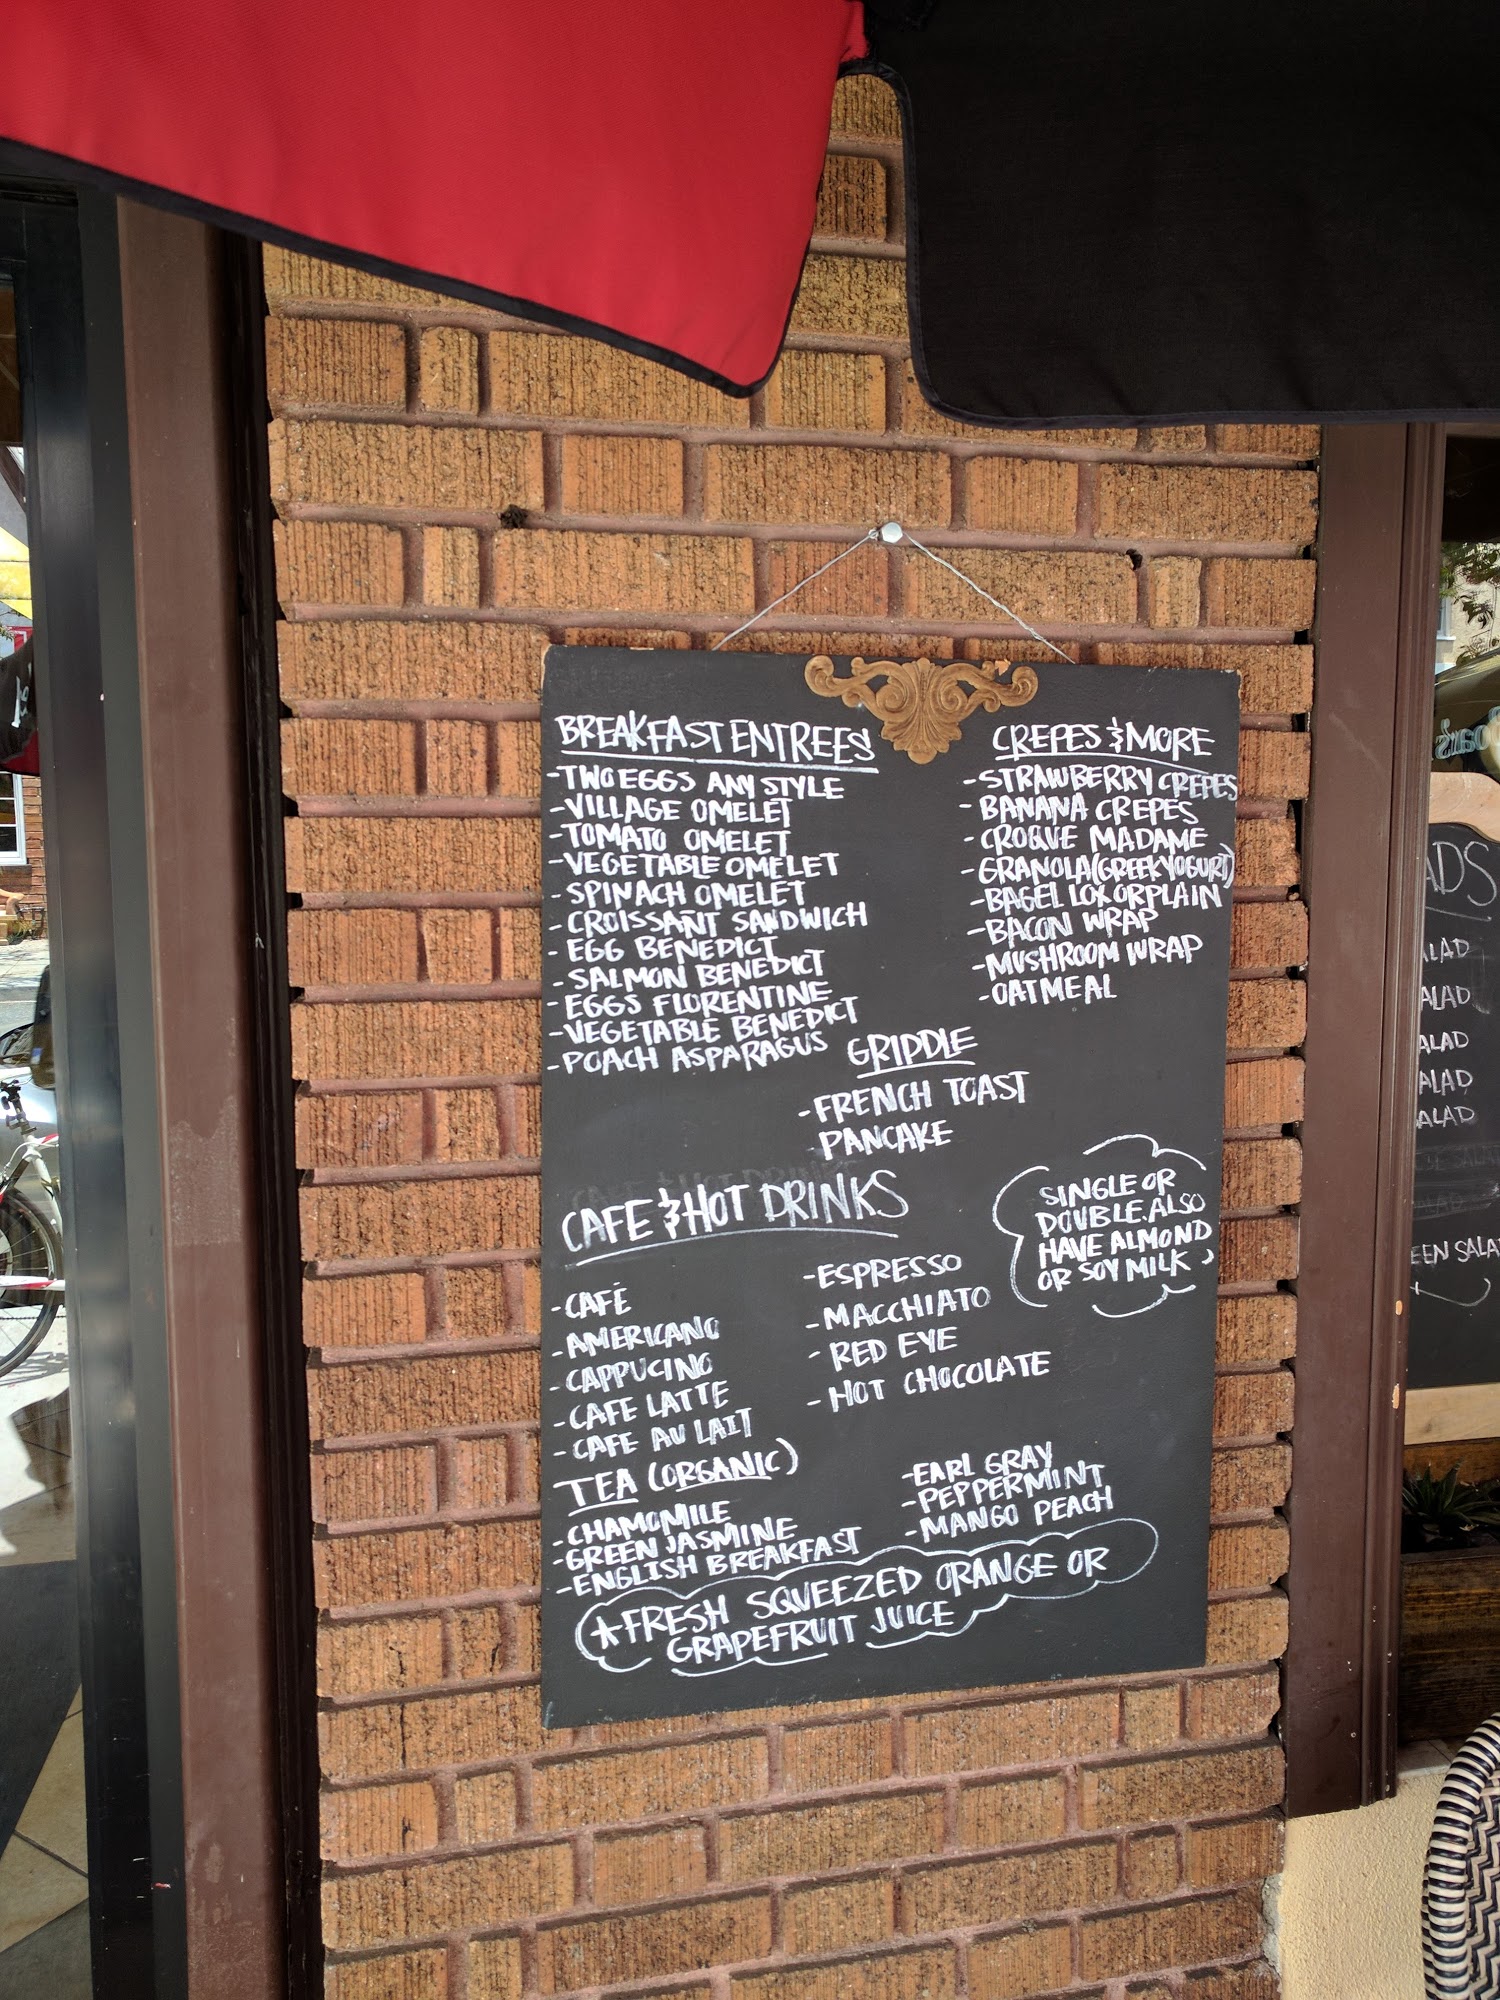 BREAKFAST ENTREES
-TWO EGGS ANY STYLE
-VILLAGE OMELET
-TOMATO OMELET
-VEGETABLE OMELET
-SPINACH OMELET
-CROISSANT SANDWICH
-EGG BENEDICT
-SALMON BENEDICT
-EGGS FLORENTINE
-VEGETABLE BENEDICT
-POACH ASPARAGUS
CREPES & MORE
-STRAWBERRY CREPES
-BANANA CREPES
-CROQUE MADAME
-GRANOLA (GREEK YOGURT)
-BAGEL LOX OR PLAIN
-BACON WRAP
-MUSHROOM WRAP
-OATMEAL
GRIDDLE
-FRENCH TOAST
-PANCAKE
CAFE & HOT DRINKS
-CAFÉ
-AMERICANO
-CAPPUCINO
-CAFE LATTE
-CAFE AU LAIT
-ESPRESSO
-MACCHIATO
-RED EYE
-HOT CHOCOLATE
SINGLE OR
DOUBLE. ALSO
HAVE ALMOND
OR SOY MILK
TEA (ORGANIC)
-CHAMOMILE
-GREEN JASMINE
-ENGLISH BREAKFAST
-EARL GRAY
-PEPPERMINT
-MANGO PEACH
*FRESH SQUEEZED ORANGE OR
GRAPEFRUIT JUICE
ADS
ALAD
ALAD
ALAD
ALAD
ALAD
EEN SALA